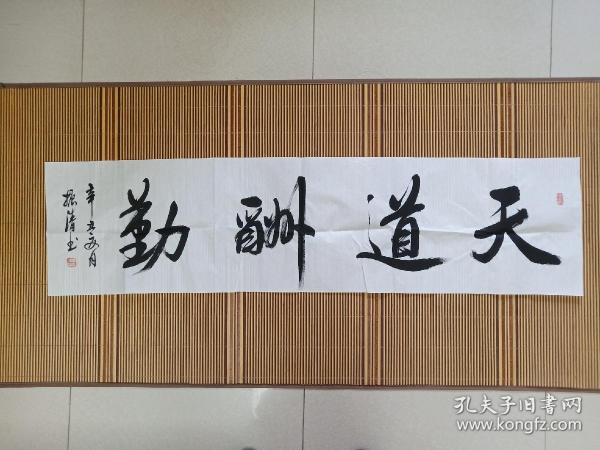 天道酬勤
辛丑年月
振清书
孔夫子旧書网
www.kongfz.com